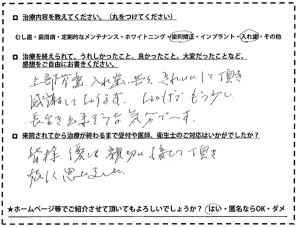 □治療内容を教えてください。（丸をつけてください）
むし歯・歯周病・定期的なメンテナンス・ホワイトニング・歯列矯正・インプラント・入れ歯・その他
□治療を終えられて、うれしかったこと、良かったこと、大変だったことなど、
感想をご自由にお書きください。
上部背歯、入れ歯 きれいにして頂き
感謝しております。しかげでもう少し
長生き出来そうな気分で～す。
□来院されてから治療が終わるまで受付や医師、衛生士のご対応はいかがでしたか？
皆様 優しく親切に接して頂き
嬉しく思いました
★ホームページ等でご紹介させて頂いてもよろしいでしょうか？ はい・匿名ならOK・ダメ